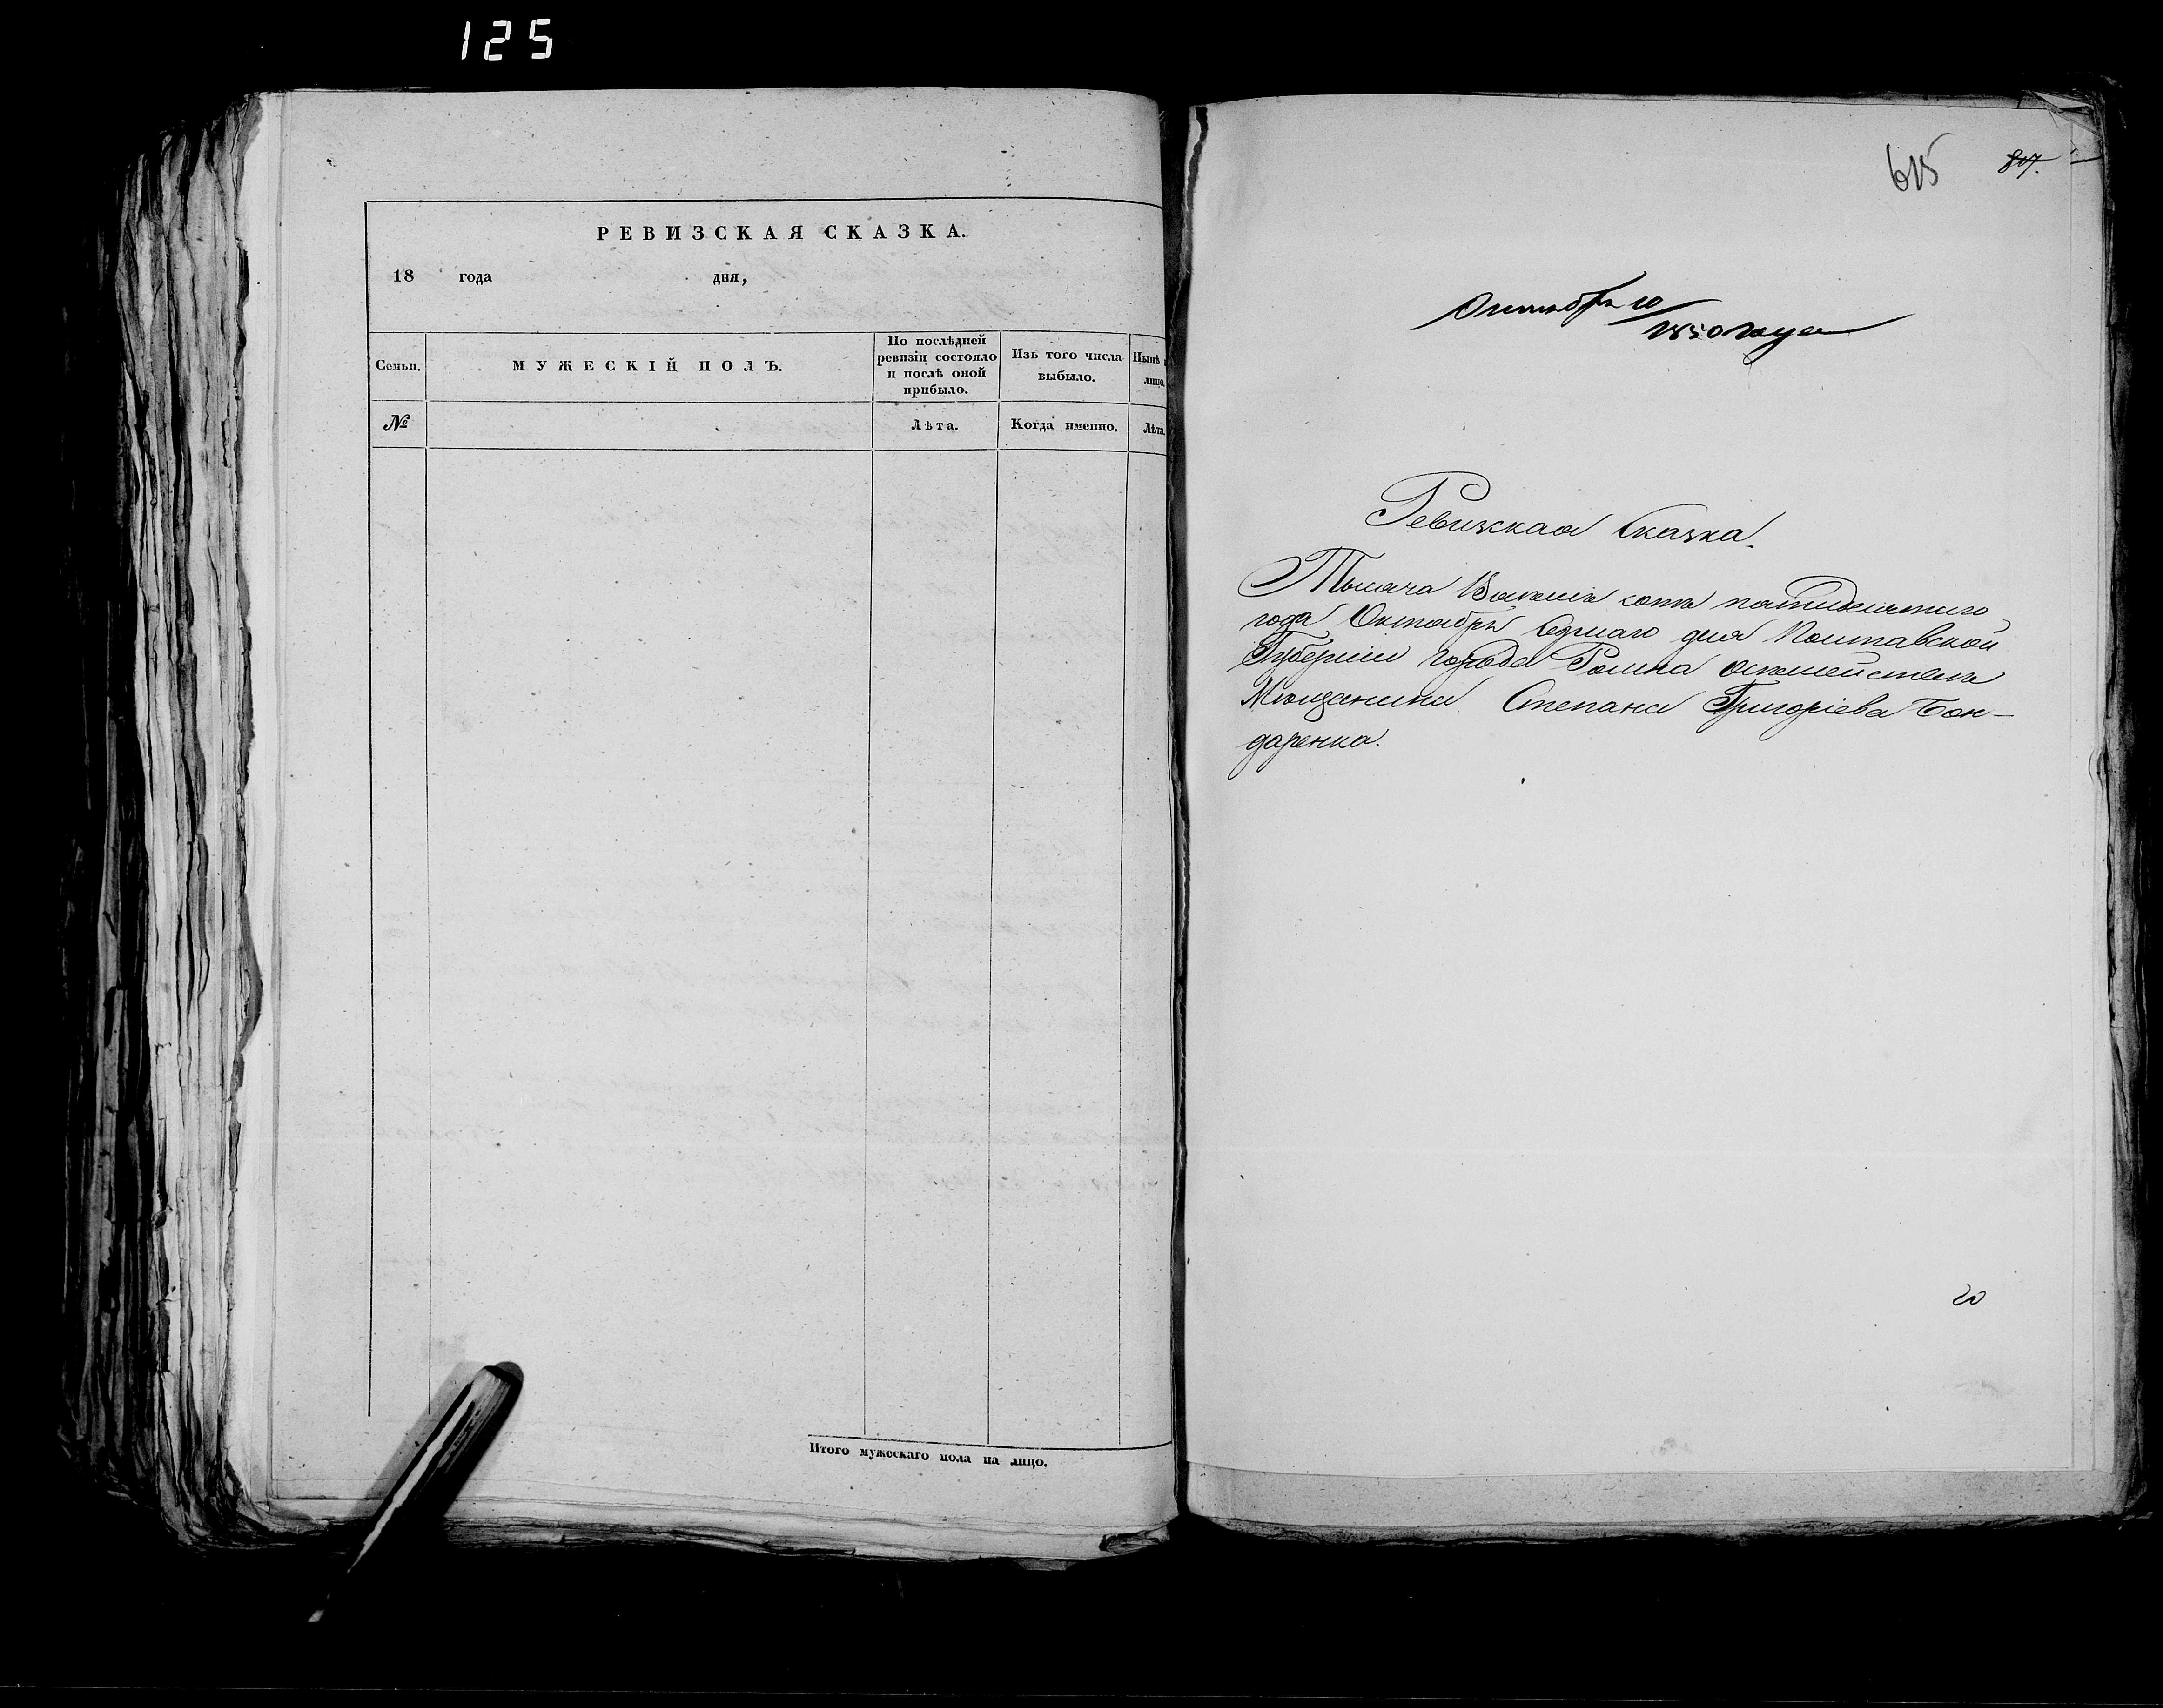 125
РЕВИЗСКАЯ СКАЗКА.
18 года дня,
Семьи.
МУЖЕСКІЙ ПОЛЪ.
По послѣдней
ревизіи состояло
и послѣ оной
прибыло.
Изъ того числа
выбыло.
Нынѣ
лицо.
№
Лѣта.
Когда именно.
Лѣта.
Итого мужескаго пола на лицо.
615
817.
Октября 10
1850 года
Ревизская Сказка.
Тысяча Восемь сотъ пятидесятого
года Октября дня Полтавской
Губерніи города Ромна
Мѣщанина Степана Григоріева Бон-
даренка.
20